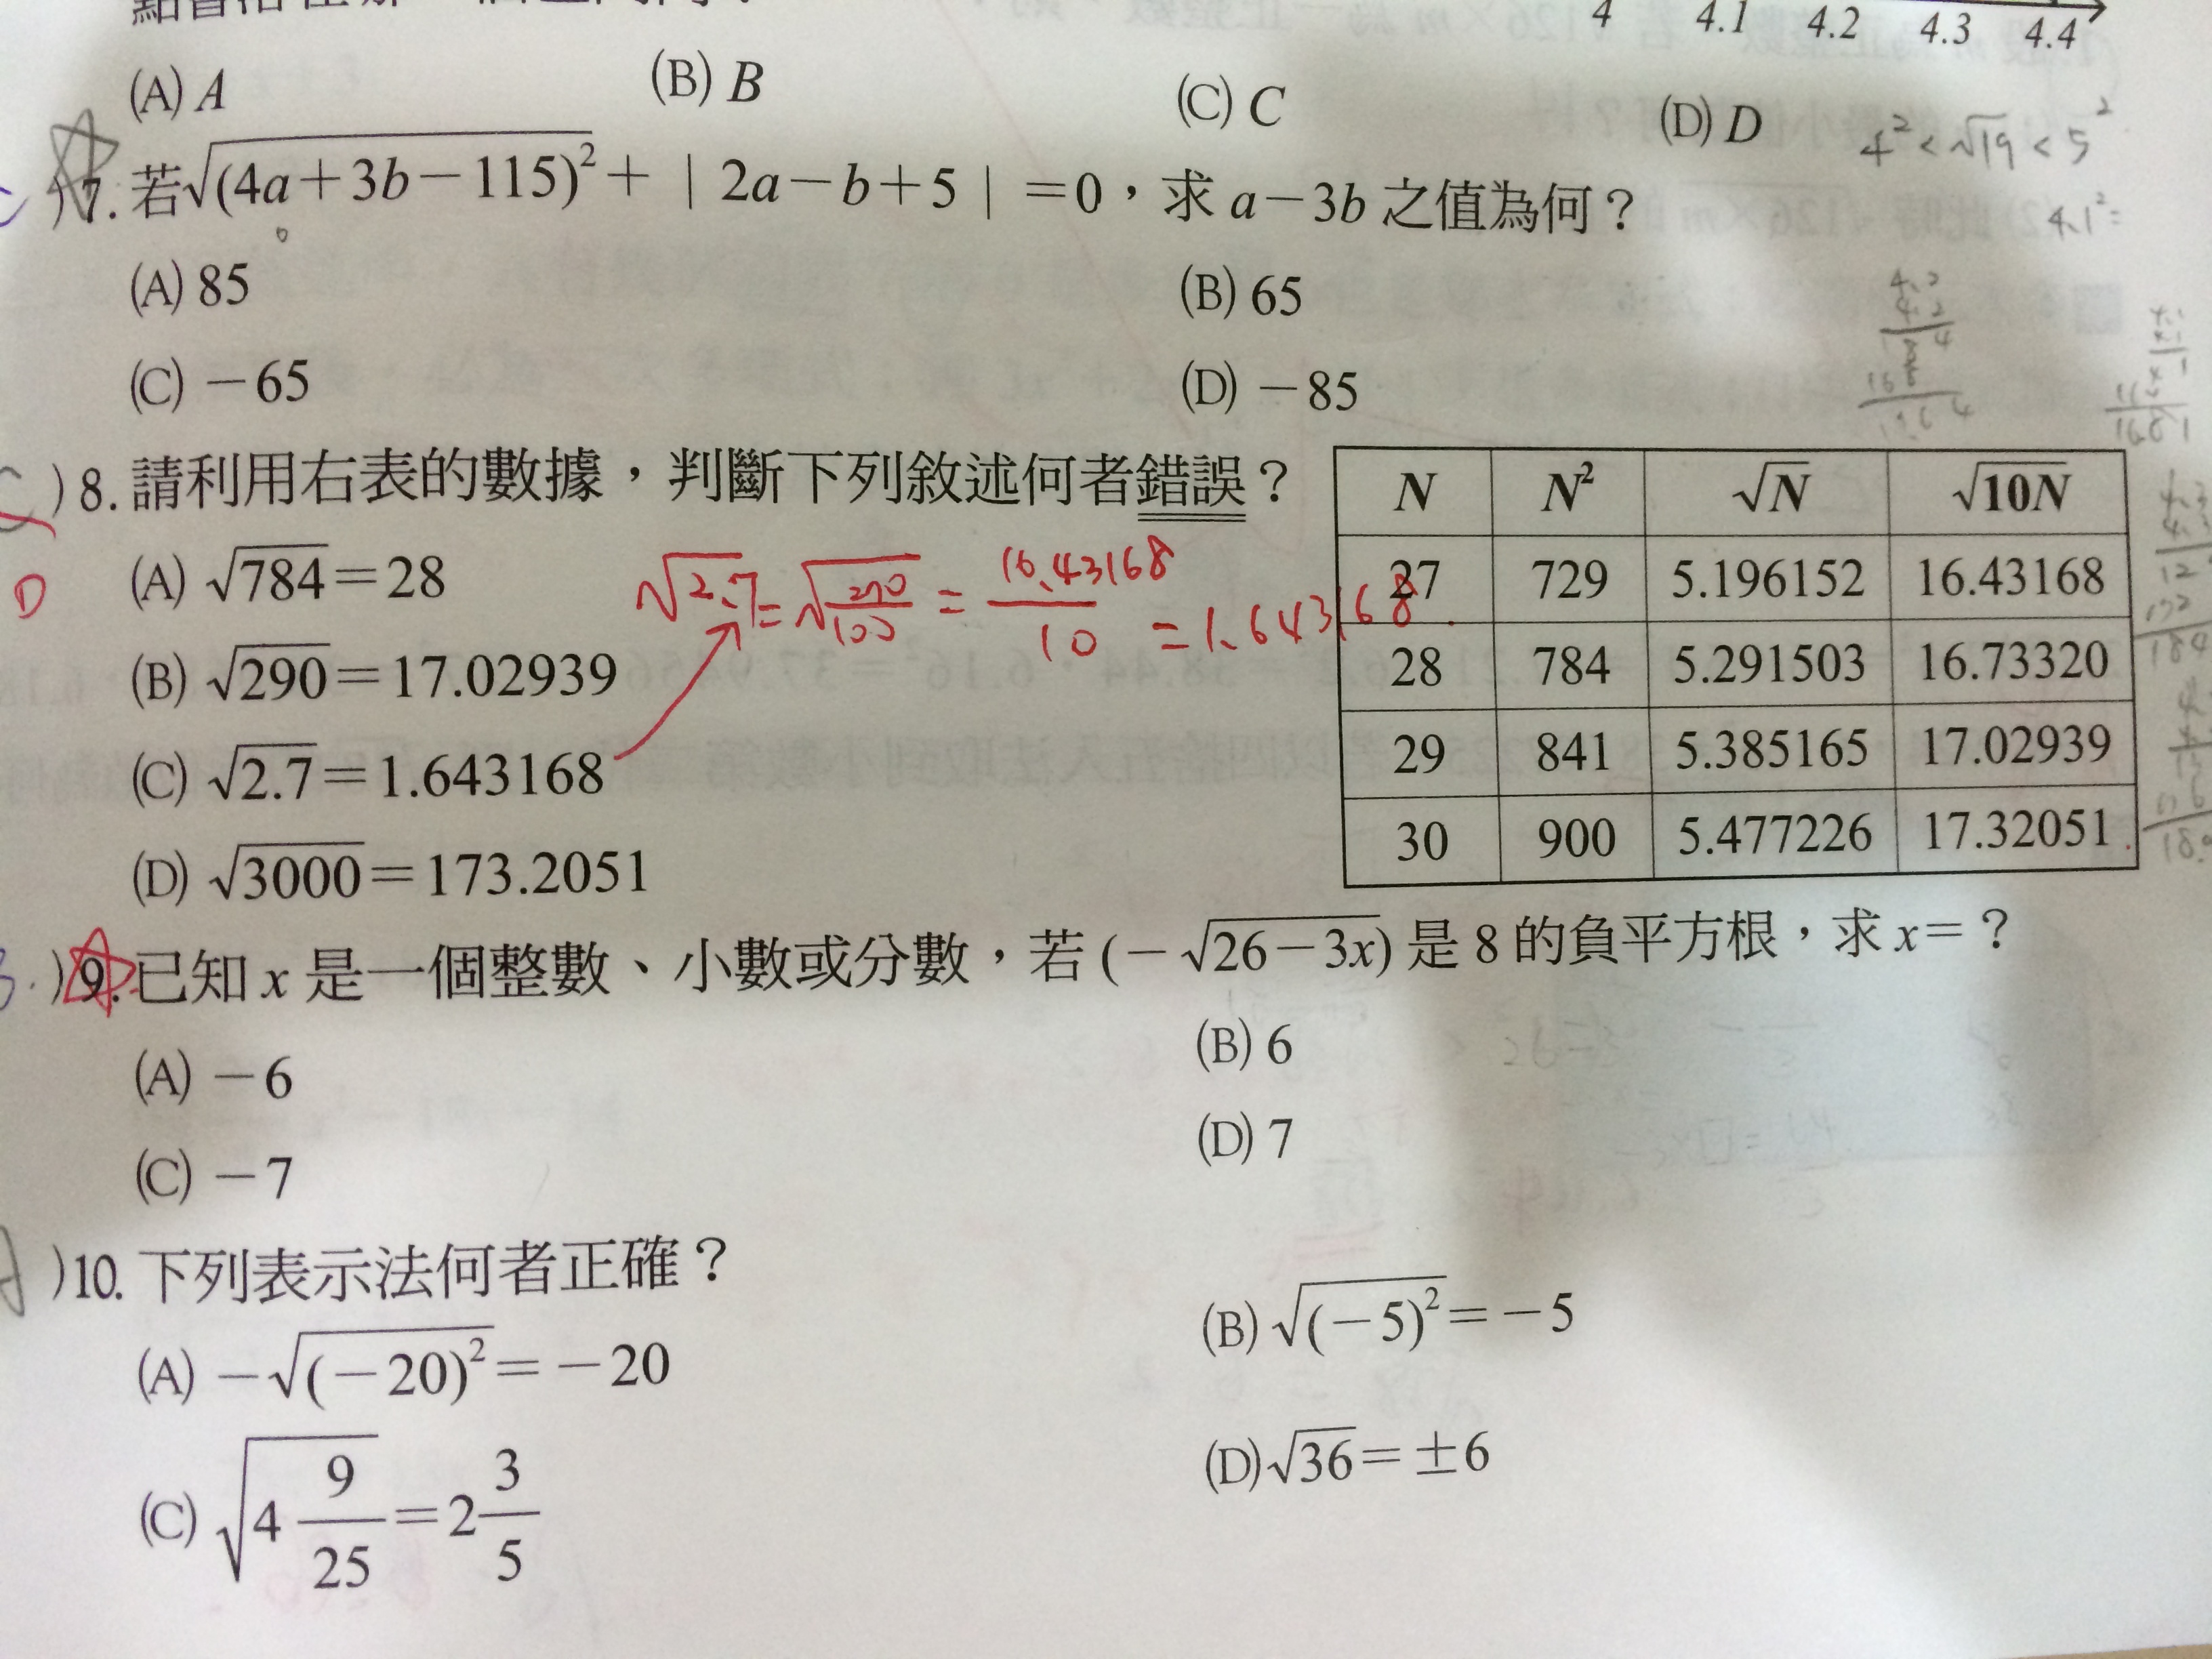 4 4.1 4.2 4.3 4.4
(A) A (B) B (C) C (D) D
4² < √19 < 5²
4.1² =
)7. 若√(4a+3b−115)² + | 2a−b+5 | =0，求 a−3b 之值為何？
(A) 85 (B) 65
(C) −65 (D) −85
)8. 請利用右表的數據，判斷下列敘述何者錯誤？
D
(A) √784=28
(B) √290=17.02939
(C) √2.7=1.643168
(D) √3000=173.2051
√2.7 = √270/100 = 16.43168/10 = 1.643168
N N² √N √10N
27 729 5.196152 16.43168
28 784 5.291503 16.73320
29 841 5.385165 17.02939
30 900 5.477226 17.32051
)9. 已知 x 是一個整數、小數或分數，若 (−√26−3x) 是 8 的負平方根，求 x=？
(A) −6 (B) 6
(C) −7 (D) 7
)10. 下列表示法何者正確？
(A) −√(−20)²=−20 (B) √(−5)²=−5
(C) √4 9/25=2 3/5 (D) √36=±6